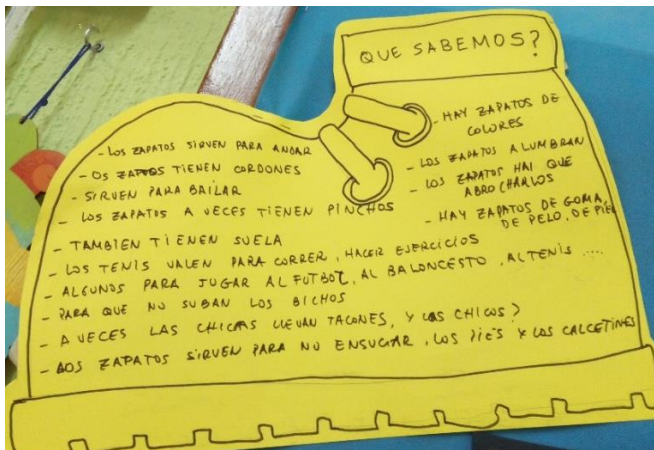 QUE SABEMOS?
- LOS ZAPATOS SIRVEN PARA ANDAR
- OS ZAPATOS TIENEN CORDONES
- SIRVEN PARA BAILAR
- LOS ZAPATOS A VECES TIENEN PINCHOS
- TAMBIEN TIENEN SUELA
- LOS TENIS VALEN PARA CORRER, HACER EJERCICIOS
- ALGUNOS PARA JUGAR AL FUTBOL, AL BALONCESTO, AL TENIS ....
- PARA QUE NO SUBAN LOS BICHOS
- A VECES LAS CHICAS LLEVAN TACONES, Y LOS CHICOS?
- LOS ZAPATOS SIRVEN PARA NO ENSUCIAR, LOS PIES Y LOS CALCETINES
- HAY ZAPATOS DE
COLORES
- LOS ZAPATOS ALUMBRAN
- LOS ZAPATOS HAI QUE
ABROCHARLOS
- HAY ZAPATOS DE GOMA,
DE PELO, DE PIEL